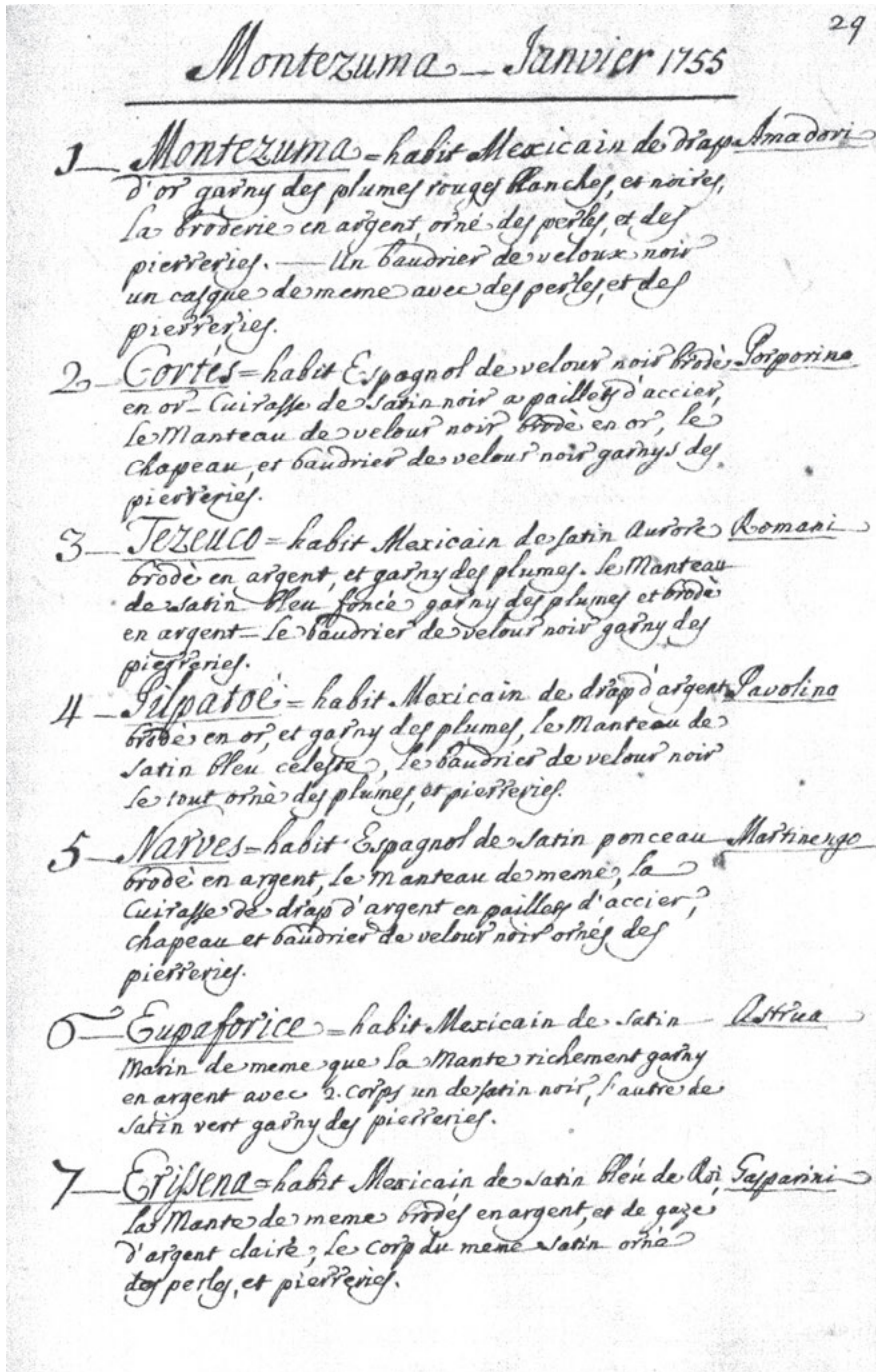 29
Montezuma — Janvier 1755
1 — Montezuma = habit Mexicain de drap Amadori
d'or garny des plumes rouges blanches, et noires,
la broderie en argent, orné des perles, et des
pierreries. — Un baudrier de veloux noir
un casque de meme avec des perles, et des
pierreries.
2 — Cortés = habit Espagnol de velour noir brodè Porporino
en or — Cuirasse de satin noir a paillets d'accier,
le Manteau de velour noir brodè en or, le
chapeau, et baudrier de velour noir garnys des
pierreries.
3 — Tezeuco = habit Mexicain de satin Aurore Romani
brodè en argent, et garny des plumes. le Manteau
de satin bleu foncé garny des plumes et brodè
en argent — le baudrier de velour noir garny des
pierreries.
4 — Pilpatoé = habit Mexicain de drap d'argent Pavolino
brodè en or, et garny des plumes, le Manteau de
satin bleu celeste, le baudrier de velour noir
le tout ornè des plumes, et pierreries.
5 — Narves = habit Espagnol de satin ponceau Martinengo
brodè en argent, le Manteau de meme, la
Cuirasse de drap d'argent en paillets d'accier,
chapeau et baudrier de velour noir ornés des
pierreries.
6 — Eupaforice = habit Mexicain de satin — Astrua
Marin de meme que la Mante richement garny
en argent avec 2. Corps un de satin noir, l'autre de
satin vert garny des pierreries.
7 — Erissena = habit Mexicain de satin bléu de Roi Gasparini
la Mante de meme brodés en argent, et de gaze
d'argent claire, le Corp du meme satin orné
des perles, et pierreries.